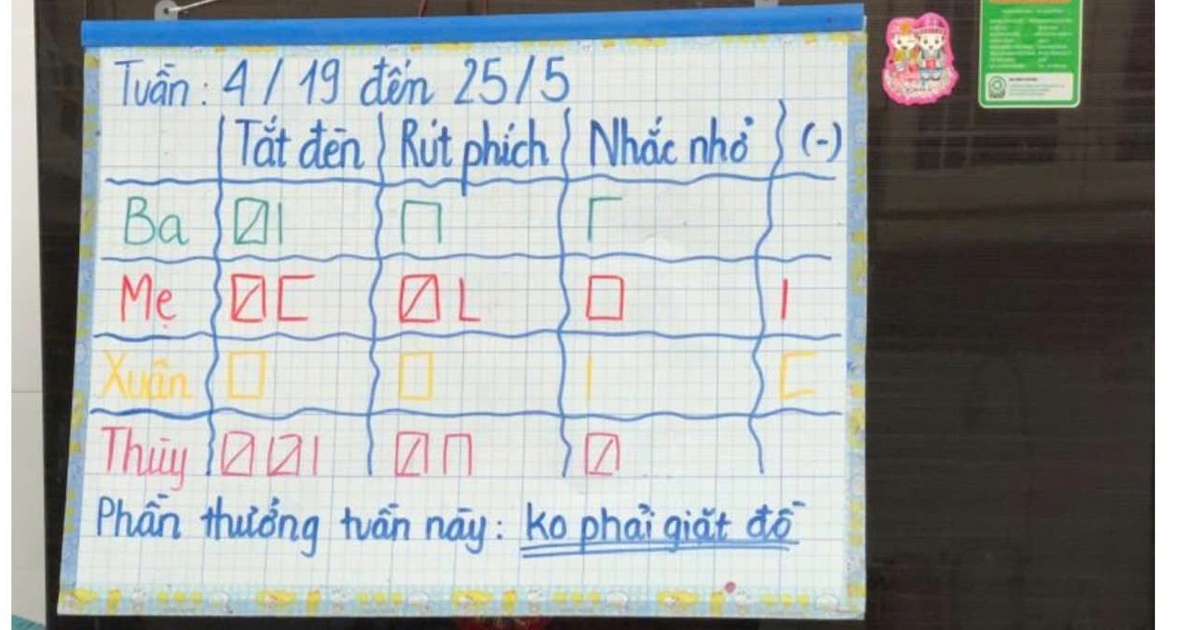 Tuần: 4 / 19 đến 25/5
Tắt đèn Rút phích Nhắc nhở (-)
Ba
Mẹ
Xuân
Thùy
Phần thưởng tuần này: ko phải giặt đồ